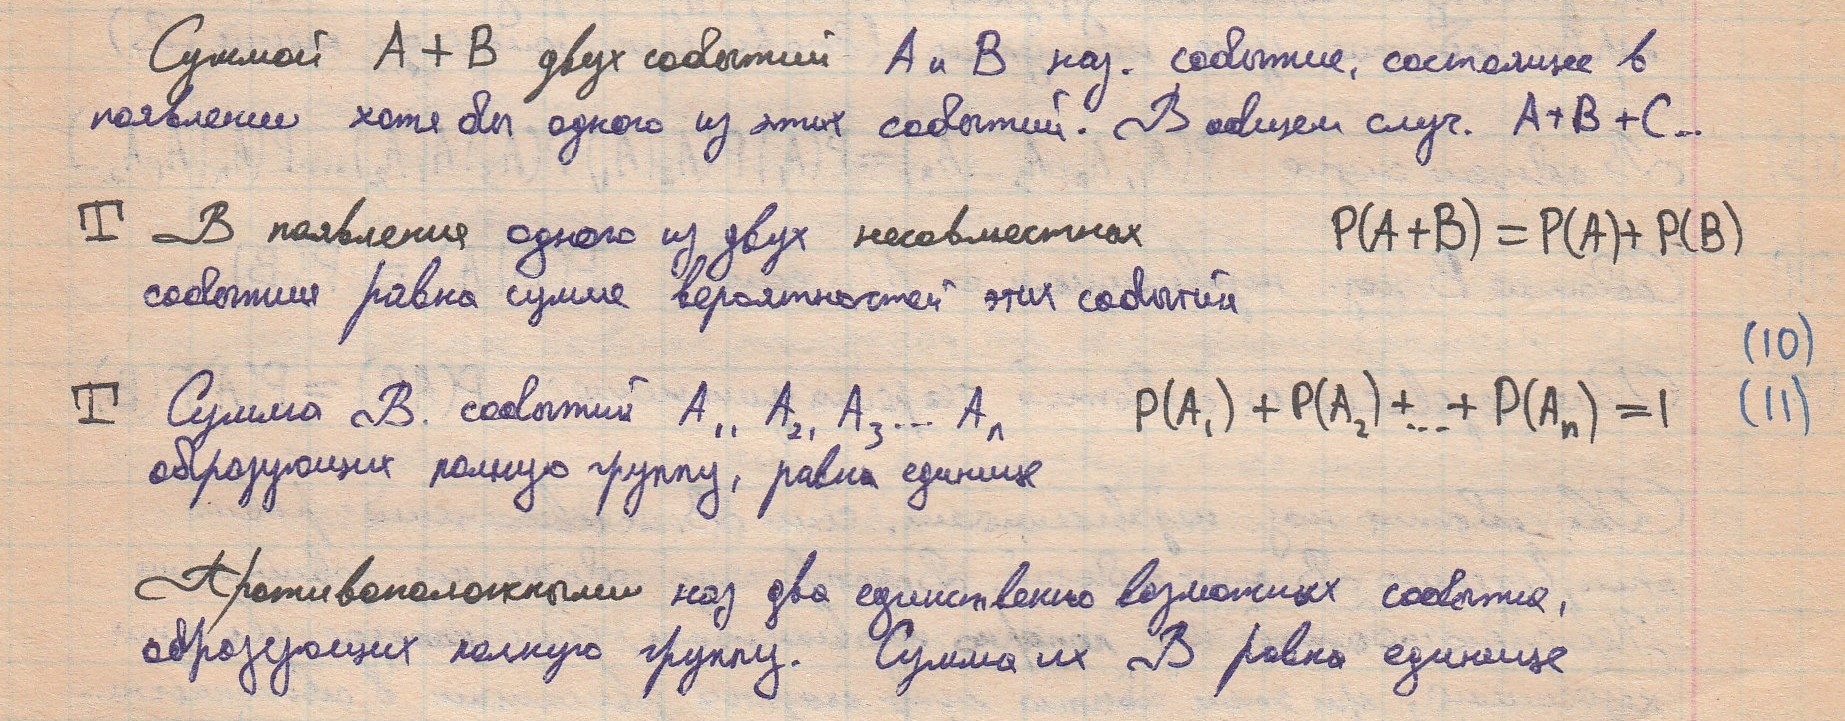 Суммой A + B двух событий A и B наз. событие, состоящее в
появлении хотя бы одного из этих событий. В общем случ. A+B+C...
T В появления одного из двух несовместных P(A+B) = P(A)+ P(B)
событий равна сумме вероятностей этих событий
(10)
T Сумма В. событий A₁, A₂, A₃... Aₙ P(A₁) + P(A₂) + ... + P(Aₙ) = 1 (11)
образующих полную группу, равна единице
Противоположными наз два единственно возможных события,
образующих полную группу. Сумма их В равна единице